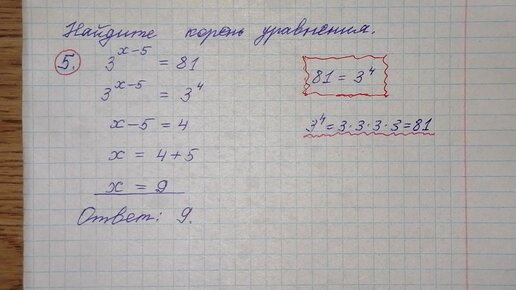 Найдите корень уравнения.
5. 3^{x-5} = 81
3^{x-5} = 3^4
x-5 = 4
x = 4+5
x = 9
Ответ: 9.
81 = 3^4
3^4 = 3·3·3·3 = 81